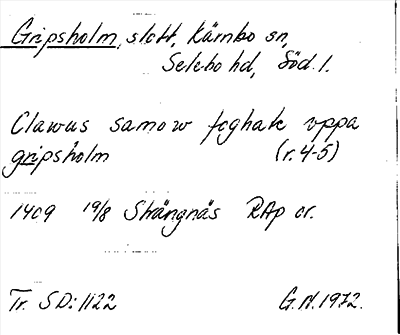 Gripsholm, slott, Kärnbo sn,
Selebo hd, Söd. l.
Clawus samow foghate vppa
gripsholm (r. 4-5)
1409 19/8 Strängnäs RAp or.
Tr. SD: 1122 G.N. 1972.